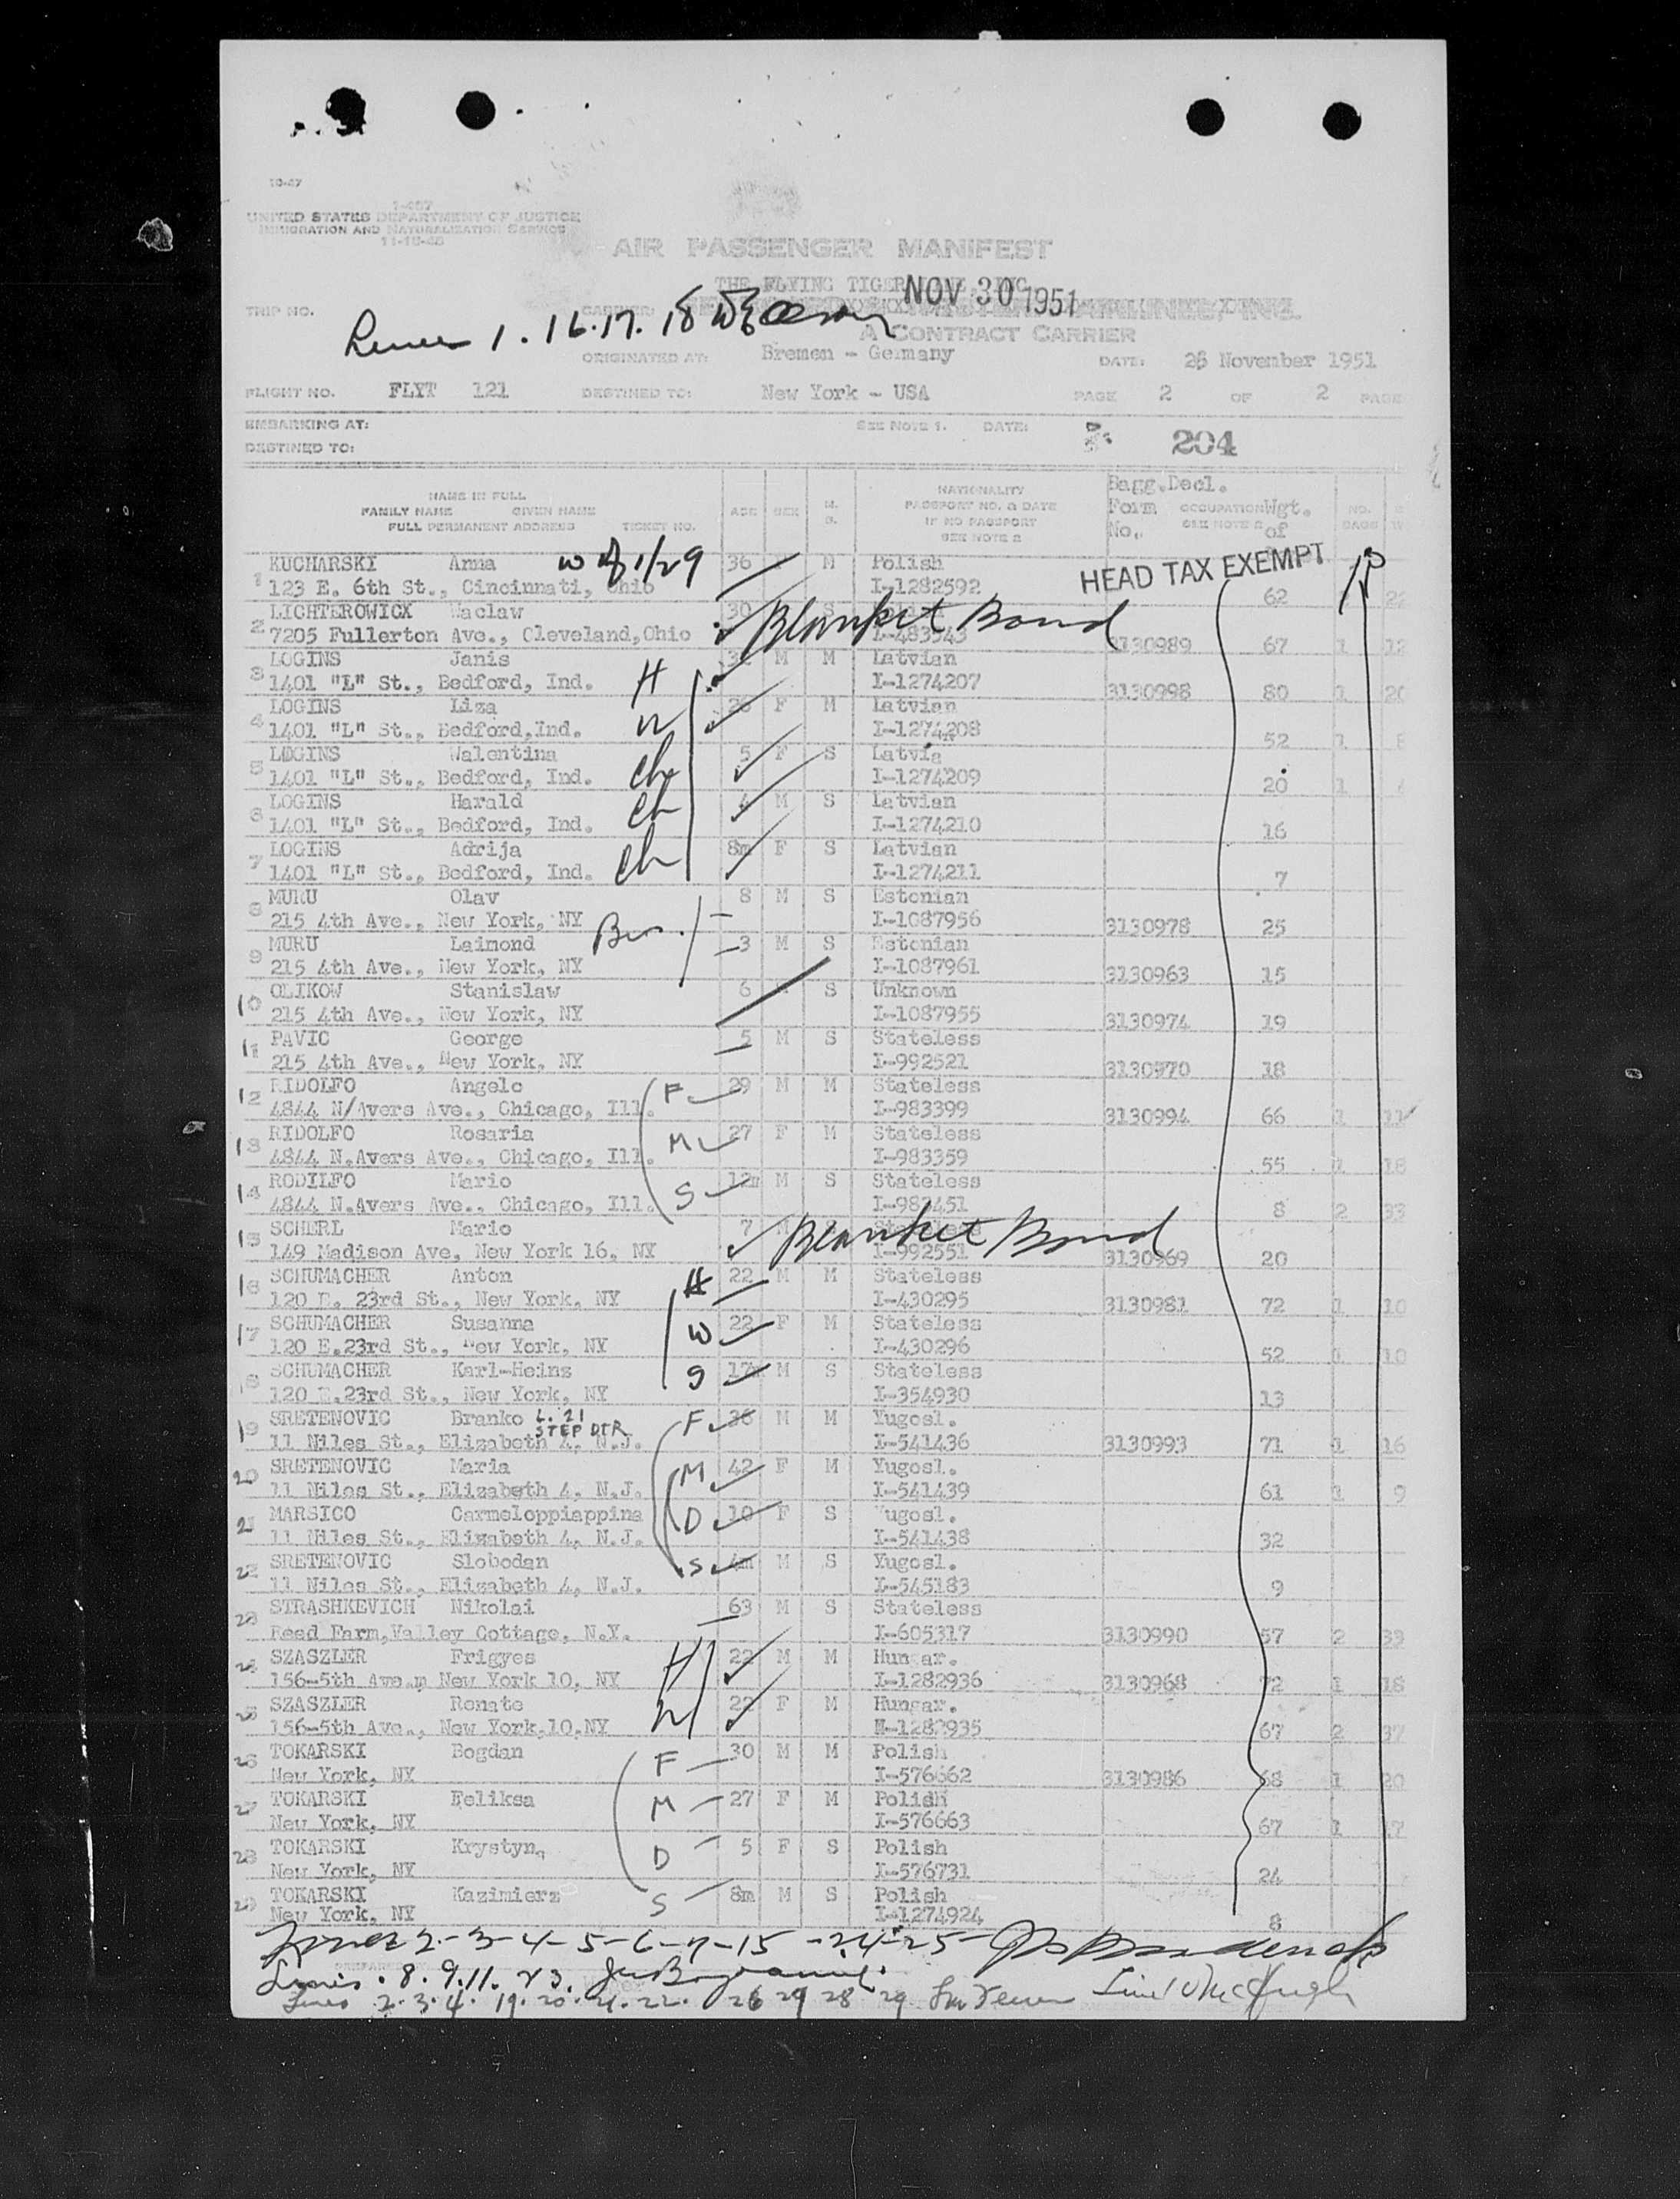 10-47
I-487
UNITED STATES DEPARTMENT OF JUSTICE
IMMIGRATION AND NATURALIZATION SERVICE
11-18-48
AIR PASSENGER MANIFEST
THE FLYING TIGER LINE, INC.
NOV 30 1951
TRIP NO. CARRIER:
1. 16. 17. 18
A CONTRACT CARRIER
ORIGINATED AT: Bremen - Germany DATE: 28 November 1951
FLIGHT NO. FLYT 121 DESTINED TO: New York - USA PAGE 2 OF 2 PAGE
EMBARKING AT: SEE NOTE 1. DATE:
DESTINED TO: 204
NAME IN FULL
FAMILY NAME GIVEN NAME
FULL PERMANENT ADDRESS TICKET NO.
AGE SEX M. S.
NATIONALITY
PASSPORT NO. & DATE
IF NO PASSPORT
SEE NOTE 2
Bagg. Decl.
Form OCCUPATION Wgt. NO.
No. SEE NOTE 2 of BAGS
HEAD TAX EXEMPT
KUCHARSKI Anna 36 M Polish
1 123 E. 6th St., Cincinnati, Ohio I-1282592 62 22
LICHTEROWICX Waclaw 30 S Blanket Bond
2 7205 Fullerton Ave., Cleveland,Ohio I-483543 3130989 67 1 12
LOGINS Janis M M Latvian
3 1401 "L" St., Bedford, Ind. H I-1274207 3130998 80 1 20
LOGINS Liza 26 F M Latvian
4 1401 "L" St., Bedford,Ind. W I-1274208 52 1 8
LOGINS Walentina 5 F S Latvia
5 1401 "L" St., Bedford, Ind. Ch I-1274209 20 1
LOGINS Harald 4 M S Latvian
6 1401 "L" St., Bedford, Ind. Ch I-1274210 16
LOGINS Adrija 8m F S Latvian
7 1401 "L" St., Bedford, Ind. Ch I-1274211 7
MURU Olav 8 M S Estonian
8 215 4th Ave., New York, NY I-1087956 3130978 25
MURU Laimond 3 M S Estonian
9 215 4th Ave., New York, NY I-1087961 3130963 15
OLIKOW Stanislaw 6 S Unknown
10 215 4th Ave., New York, NY I-1087955 3130974 19
PAVIC George 5 M S Stateless
11 215 4th Ave., New York, NY I-992521 3130970 18
RIDOLFO Angelo F 29 M M Stateless
12 4844 N/Avers Ave., Chicago, Ill. I-983399 3130994 66 1 11
RIDOLFO Rosaria M 27 F M Stateless
13 4844 N.Avers Ave., Chicago, Ill. I-983359 55 1 18
RODILFO Mario S 12m M S Stateless
14 4844 N.Avers Ave., Chicago, Ill. I-983451 8 2 33
SCHERL Mario 7 Blanket Bond
15 149 Madison Ave, New York 16, NY I-992551 3130969 20
SCHUMACHER Anton H 22 M M Stateless
16 120 E. 23rd St., New York, NY I-430295 3130981 72 1 10
SCHUMACHER Susanna W 22 F M Stateless
17 120 E.23rd St., New York, NY I-430296 52 1 10
SCHUMACHER Karl-Heinz S 17m M S Stateless
18 120 E.23rd St., New York, NY I-354930 13
SRETENOVIC Branko L. 21 STEP DTR F 36 M M Yugosl.
19 11 Niles St., Elizabeth 4, N.J. I-541436 3130993 71 1 16
SRETENOVIC Maria M 42 F M Yugosl.
20 11 Niles St., Elizabeth 4, N.J. I-541439 61 1 9
MARSICO Carmeloppiappina D 10 F S Yugosl.
21 11 Niles St., Elizabeth 4, N.J. I-541438 32
SRETENOVIC Slobodan S 4m M S Yugosl.
22 11 Niles St., Elizabeth 4, N.J. I-545183 9
STRASHKEVICH Nikolai 63 M S Stateless
23 Reed Farm,Valley Cottage, N.Y. I-605317 3130990 57 2 39
SZASZLER Frigyes H 22 M M Hungar.
24 156-5th Ave.m New York 10, NY I-1282936 3130968 72 1 18
SZASZLER Renate W 22 F M Hungar.
25 156-5th Ave., New York,10,NY M-1282935 67 2 37
TOKARSKI Bogdan F 30 M M Polish
26 New York, NY I-576662 3130986 68 1 20
TOKARSKI Feliksa M 27 F M Polish
27 New York, NY I-576663 67 1 17
TOKARSKI Krystyna D 5 F S Polish
28 New York, NY I-576731 24
TOKARSKI Kazimierz S 8m M S Polish
29 New York, NY I-1274924 8
2-3-4-5-6-7-15-24-25-
Lines. 8. 9. 11. 23.
Lines 2. 3. 4. 19. 20. 21. 22. 26 27 28 29